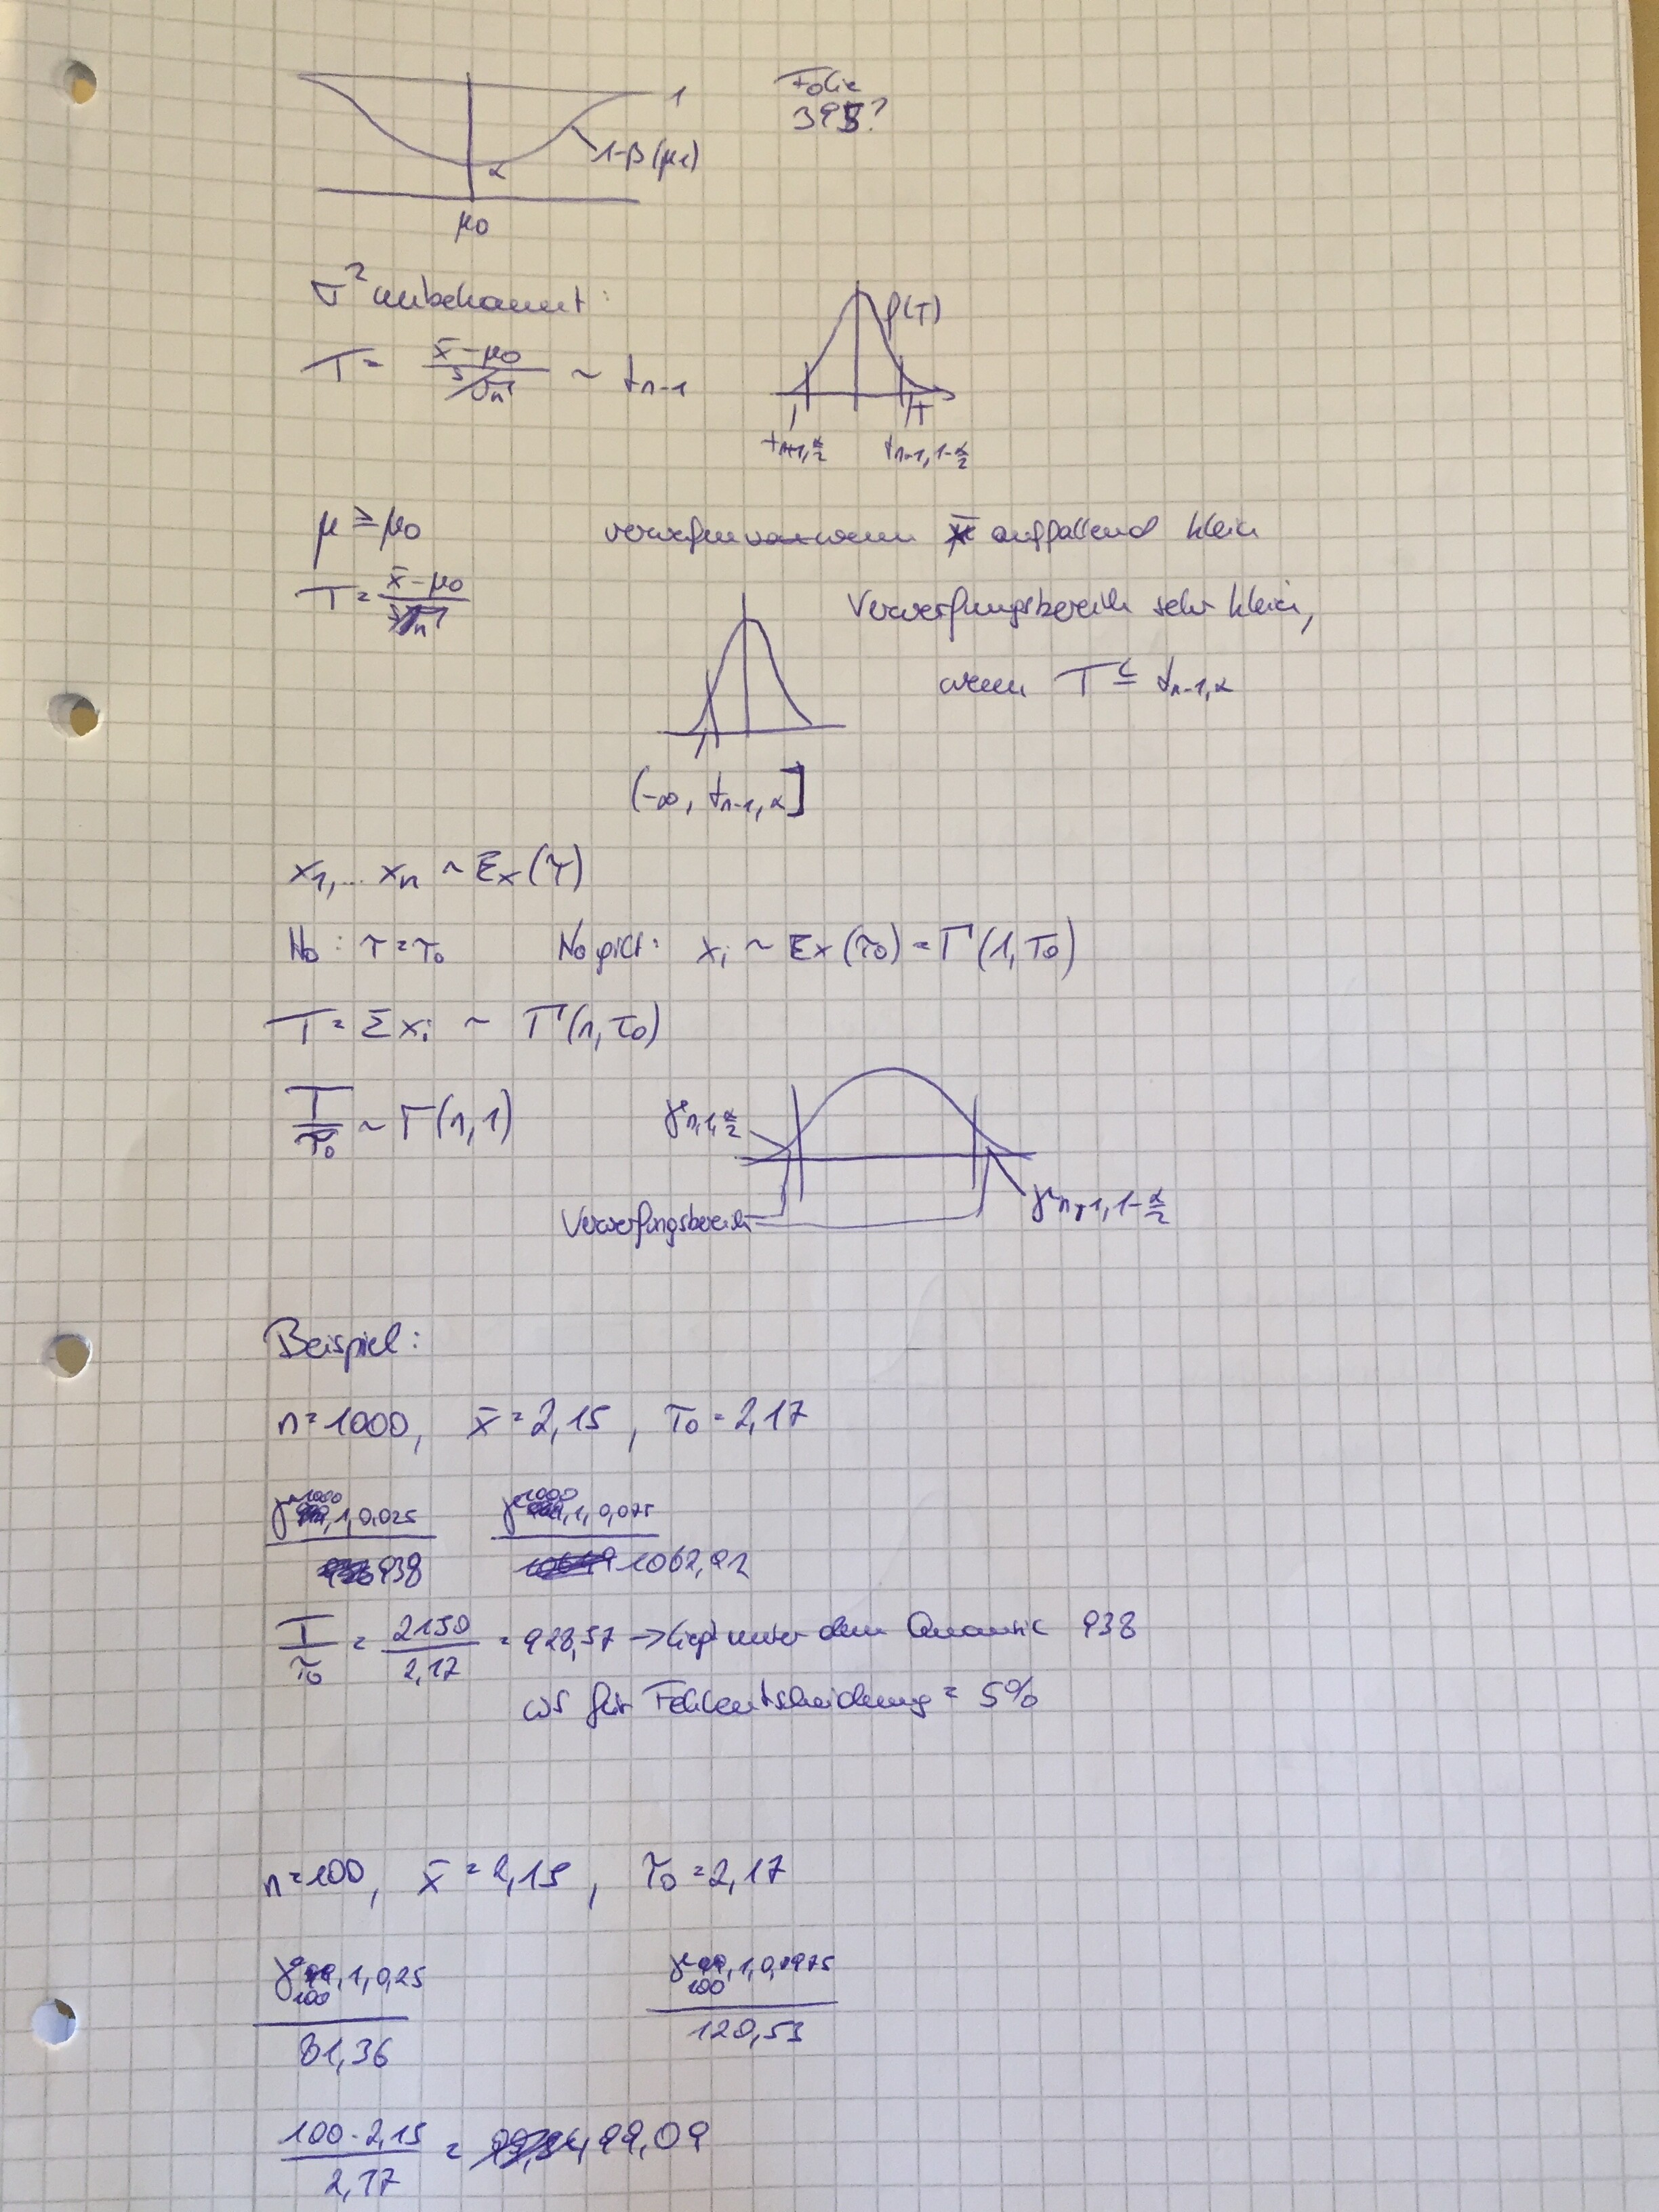 Folie
395?
1
1-β(μ1)
α
μ0
σ² unbekannt:
T = (x̄ - μ0) / (s/√n) ~ tn-1
f(T)
T
tn-1, α/2
tn-1, 1-α/2
μ ≥ μ0 verwerfen wenn x̄ auffallend klein
T = (x̄ - μ0) / (s/√n)
Verwerfungsbereich sehr klein,
wenn T ≤ tn-1, α
(-∞, tn-1, α]
x1, ... xn ~ Ex(τ)
H0 : τ = τ0 H0 gilt: xi ~ Ex(τ0) = Γ(1, τ0)
T = Σ xi ~ Γ(n, τ0)
T/τ0 ~ Γ(n, 1)
γn, 1, α/2
γn, 1, 1-α/2
Verwerfungsbereich
Beispiel:
n = 1000, x̄ = 2,15, τ0 = 2,17
γ1000, 1, 0,025 γ1000, 1, 0,075
938 1062,92
T/τ0 = 2150/2,17 = 928,57 → liegt unter dem Quantil 938
WS für Fehlentscheidung = 5%
n = 100, x̄ = 2,15, τ0 = 2,17
γ100, 1, 0,25 γ100, 1, 0,975
81,36 120,53
(100 · 2,15) / 2,17 = 99,09